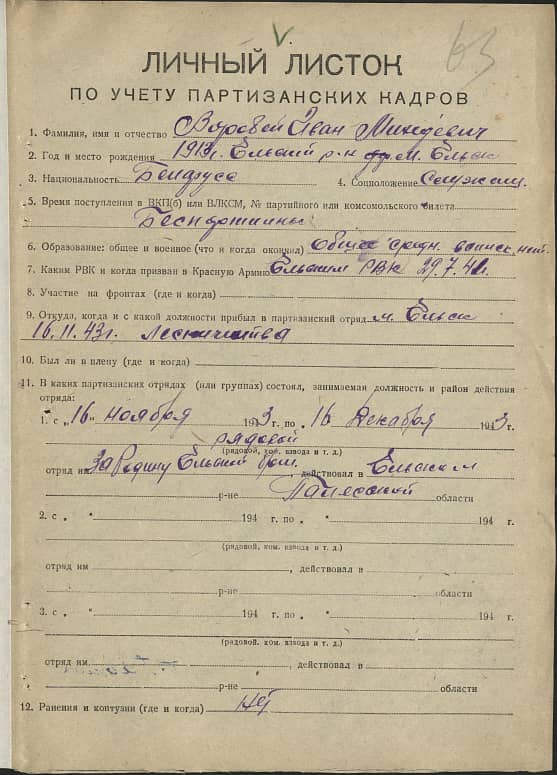 63
ЛИЧНЫЙ ЛИСТОК
ПО УЧЕТУ ПАРТИЗАНСКИХ КАДРОВ
1. Фамилия, имя и отчество Иван
2. Год и место рождения 1913г. Ельский р-н м. Ельск
3. Национальность 4. Соцположение Служащ.
5. Время поступления в ВКП(б) или ВЛКСМ, № партийного или комсомольского билета
6. Образование: общее и военное (что и когда окончил) общее средн. воинск. нет
7. Каким РВК и когда призван в Красную Армию Ельским РВК 29.7.41г.
8. Участие на фронтах (где и когда)
9. Откуда, когда и с какой должности прибыл в партизанский отряд м. Ельск
16.11.43г.
10. Был ли в плену (где и когда)
11. В каких партизанских отрядах (или группах) состоял, занимаемая должность и район действия
отряда:
1. с „16" ноября 1943г. по „16" декабря 1943г.
рядовой
(рядовой, ком. взвода и т. д.)
отряд им За Родину Ельский действовал в Ельском
р-не Полесской области
2. с „ " 194 г. по „ " 194 г.
(рядовой, ком. взвода и т. д.)
отряд им , действовал в
р-не области
3. с „ " 194 г. по „ " 194 г.
(рядовой, ком. взвода и т. д.)
отряд им , действовал в
р-не области
12. Ранения и контузии (где и когда) нет